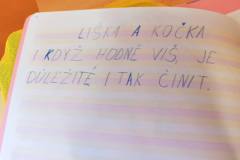 LIŠKA A KOČKA
I KDYŽ HODNĚ VÍŠ, JE
DŮLEŽITÉ I TAK ČINIT.